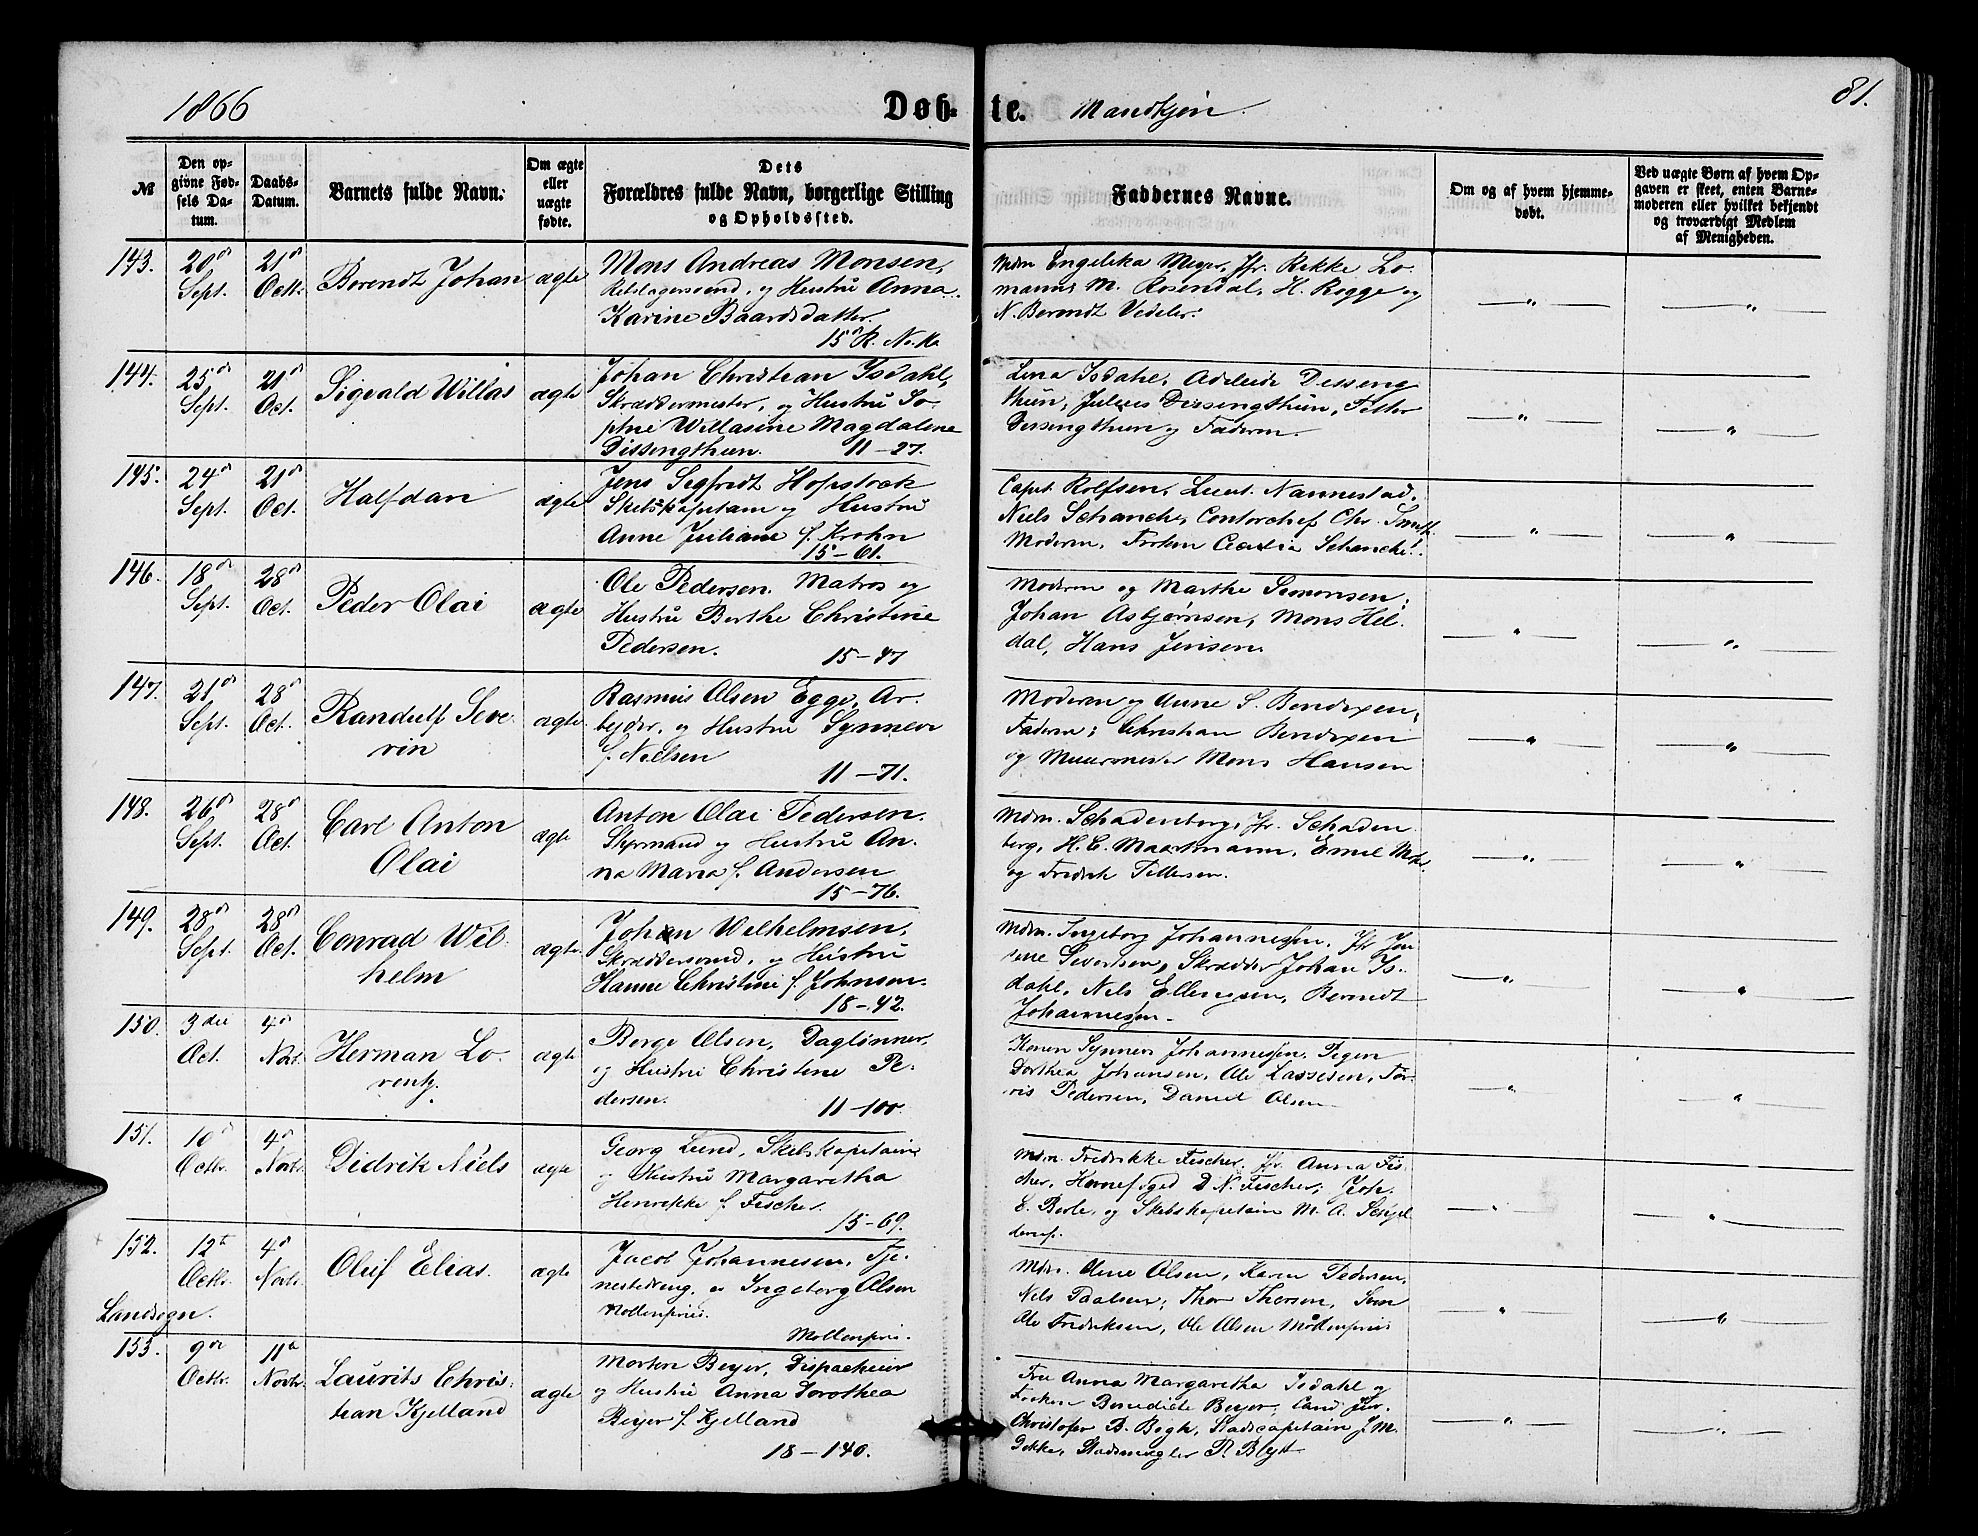 1866
Døb-
te.
Mandkjøn.
81.
№
Den op-
givne Fød-
sels Da-
tum.
Daabs-
Datum.
Barnets fulde Navn.
Om ægte
eller
uægte
fødte.
Dets
Forældres fulde Navn, borgerlige Stilling
og Opholdssted.
Faddernes Navne.
Om og af hvem hjemme-
døbt.
Ved uægte Børn af hvem Op-
gaven er skeet, enten Barne-
moderen eller hvilket bekjendt
og troværdigt Medlem
af Menigheden.
143.
20de
Sept.
21de
Octb.
Berendt Johan
ægte
Mons Andreas Monsen,
Rebslagersvend, og Hustrú Anna
Karine Baardsdatter.
15 R. N. K
Mdm Engelika Meyer, Jfr. Rikke Lo-
manns M. Rosendal, H. Rogge og
N. Berendt Vedeler.
144.
25de
Sept.
21de
Oct.
Sigvald Willas
ægte
Johan Christian Isdahl,
Skræddermester, og Hustrú So-
phie Willasine Magdalene
Dissengthun. 11-27.
Lina Isdahl, Adeleide Desseng
thun, Julius Dissengthun, Peter
Dessengthun og Faderen.
145.
24de
Sept.
21de
Oct.
Halfdan
ægte
Jens Segfredt Hopstock
Skibskapitain og Hustrú
Anne Juliane f. Krohn
15-61.
Capt. Rolfsen, Lieut. Nannestad,
Niels Schanche, Contorchef Chr. Smith
Moderen, Frøken Cecilia Schanche.
146.
18de
Sept.
28de
Oct.
Peder Olai
ægte
Ole Pedersen. Matros og
Hustrú Berthe Christine
Pedersen. 15-47
Moderen og Marthe Simonsen,
Johan Asbjørnsen, Mons Hel-
dal, Hans Jensen
147.
21de
Sept.
28de
Oct.
Randulf Seve-
rin
ægte
Rasmus Olsen Egge, Ar-
beider, og Hustrú Synneve
f. Nielsen
11-71.
Moderen og Anne S. Bendixen,
Faderen, Christian Bendixen
og Muurmester Mons Hansen
148.
26de
Sept.
28de
Oct.
Carl Anton
Olai
ægte
Anton Olai Pedersen.
Styrmand og Hustrú An-
na Maria f. Andersen
15-76.
Mdm. Schadenberg, Jfr. Schaden
berg, H. E. Maartmann, Emil
og Fredrik Tillersen.
149.
28de
Sept.
28de
Oct.
Conrad Wil-
helm
ægte
Johan Wilhelmsen,
Skræddersvend, og Hustrú
Hanne Christine f. Johnsen.
18-42.
Mdm. Ingeborg Johannessen, Jfr
Severtsen, Skrædder Johan Is-
dahl, Nils Ellingsen, Berendt
Johannessen.
150.
3die
Oct.
4de
Novb.
Herman Lo-
rentz.
ægte
Børge Olsen, Daglønner,
og Hustrú Christine Pe-
dersen. 11-100
Konen Synneve Johannessen, Pigen
Dorthea Johansen, Ole Lassesen, Tor-
ris Pedersen, Daniel Olsen
151.
10de
Octbr.
4de
Novbr.
Didrik Niels
ægte
Georg Lund, Skibskapitain
og Hustrú Margaretha
Henrikke f. Fischer.
15-69.
Mdm. Fredrikke Fischer, Jfr. Anna Fis-
cher, D. N. Fischer, Joh.
E. Berle, og Skibskapitain M. A.
152.
12te
Octbr.
4de
Novbr.
Oluf Elias.
ægte
Jacob Johannesen, Tje-
nestedreng, og Ingeborg Olsen
Møllenpriis.
Møllenpriis.
Mdm. Anne Olsen, Karen Pedersen,
Nils Paalsen, Thor Thorsen,
Ole Fredriksen, Ole Olsen Møllenpriis
Landsogn.
153.
9de
Octbr.
11te
Novbr.
Laurits Chris-
tian Kjelland
ægte
Morten Beyer, Dispacheur
og Hustrú Anna Dorothea
Beyer f. Kjelland
18-140.
Fru Anna Margaretha Isdahl og
Frøken Benedicte Beyer, Cand. Jur.
Christofer B. Bøgh, Stadscapitain J. M.
Dekke, Stadsmægler R. Blytt